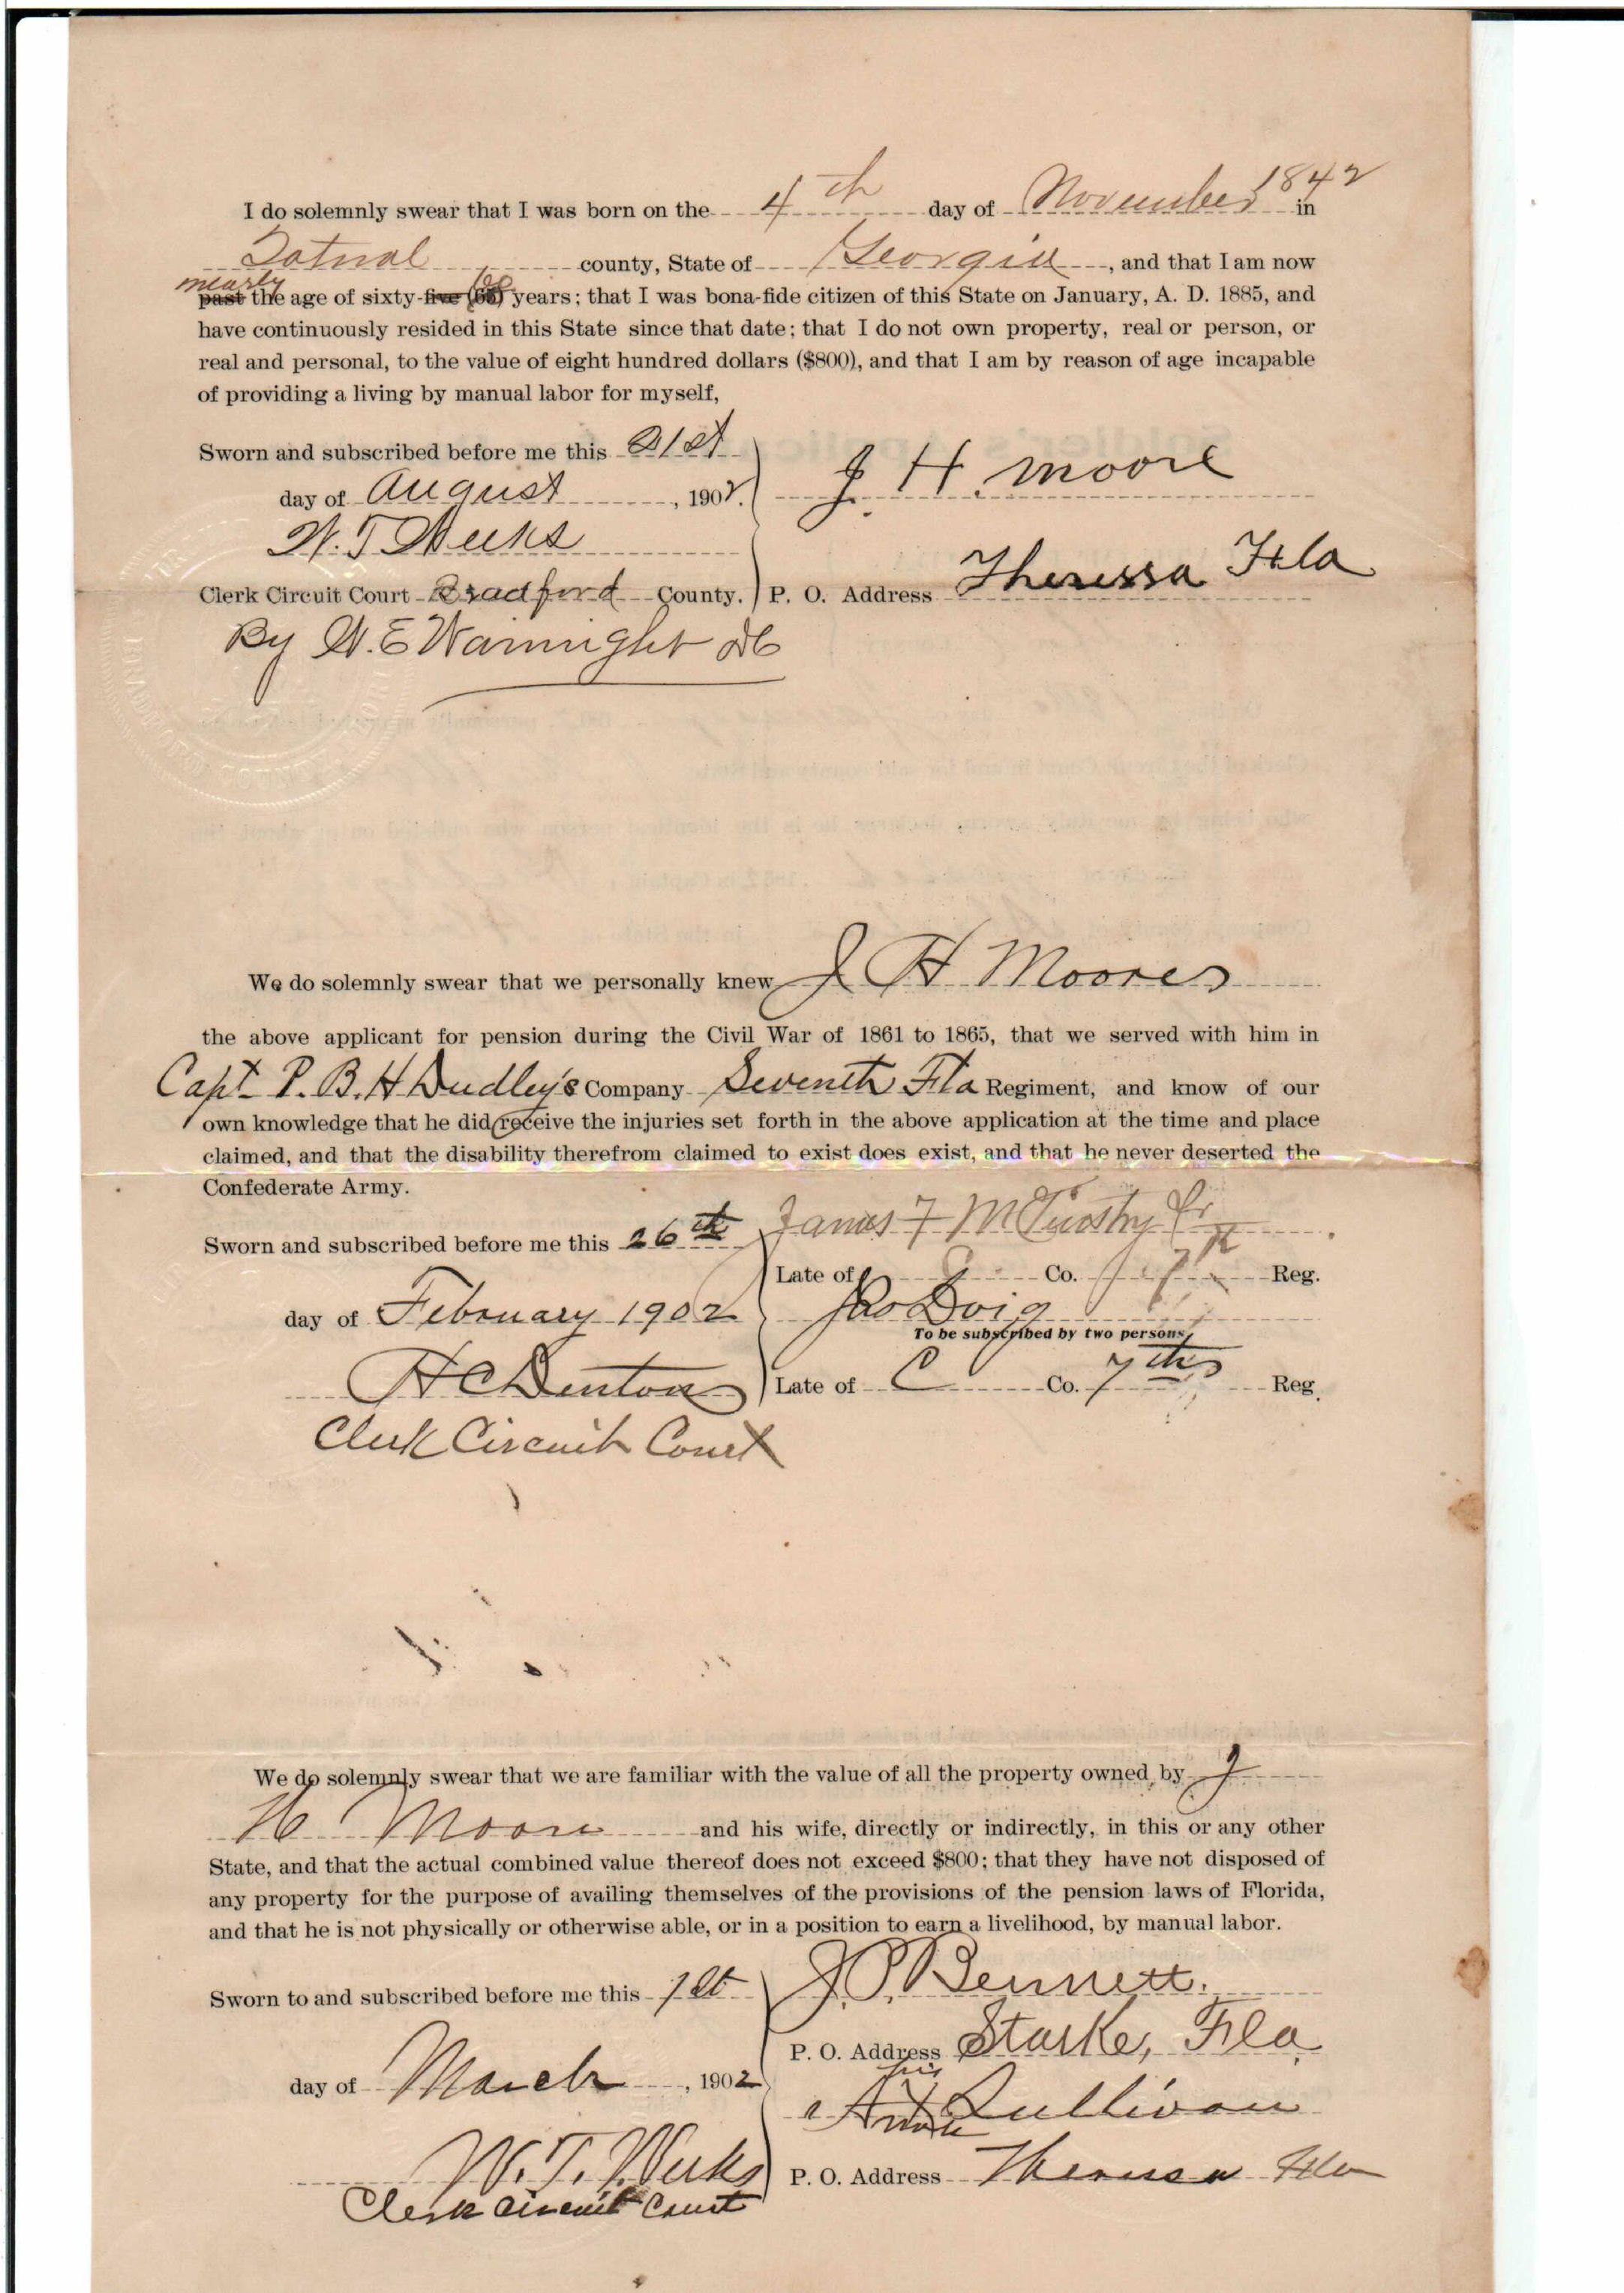 I do solemnly swear that I was born on the 4th day of November 1842 in
Tatnal county, State of Georgia, and that I am now
nearly
past the age of sixty-five (65) years; that I was bona-fide citizen of this State on January, A. D. 1885, and
have continuously resided in this State since that date; that I do not own property, real or person, or
real and personal, to the value of eight hundred dollars ($800), and that I am by reason of age incapable
of providing a living by manual labor for myself,
Sworn and subscribed before me this 21st
day of August, 1902. J. H. Moore
W. T. Weeks
Clerk Circuit Court Bradford County. P. O. Address Theressa Fla
By W. E. Wainright DC
We do solemnly swear that we personally knew J H Moores
the above applicant for pension during the Civil War of 1861 to 1865, that we served with him in
Capt P. B. H Dudley's Company Seventh Fla Regiment, and know of our
own knowledge that he did receive the injuries set forth in the above application at the time and place
claimed, and that the disability therefrom claimed to exist does exist, and that he never deserted the
Confederate Army.
Sworn and subscribed before me this 26th James F
Late of Co. 7th Reg.
day of February 1902 Doig
To be subscribed by two persons,
H C Denton Late of C Co. 7th Reg.
Clerk Circuit Court
We do solemnly swear that we are familiar with the value of all the property owned by J
H Moore and his wife, directly or indirectly, in this or any other
State, and that the actual combined value thereof does not exceed $800; that they have not disposed of
any property for the purpose of availing themselves of the provisions of the pension laws of Florida,
and that he is not physically or otherwise able, or in a position to earn a livelihood, by manual labor.
Sworn to and subscribed before me this 1st J. P. Bennett.
P. O. Address Starke, Fla
day of March, 1902
his
A X Sullivan
mark
W. T. Weeks P. O. Address Theressa Fla
Clerk Circuit Court